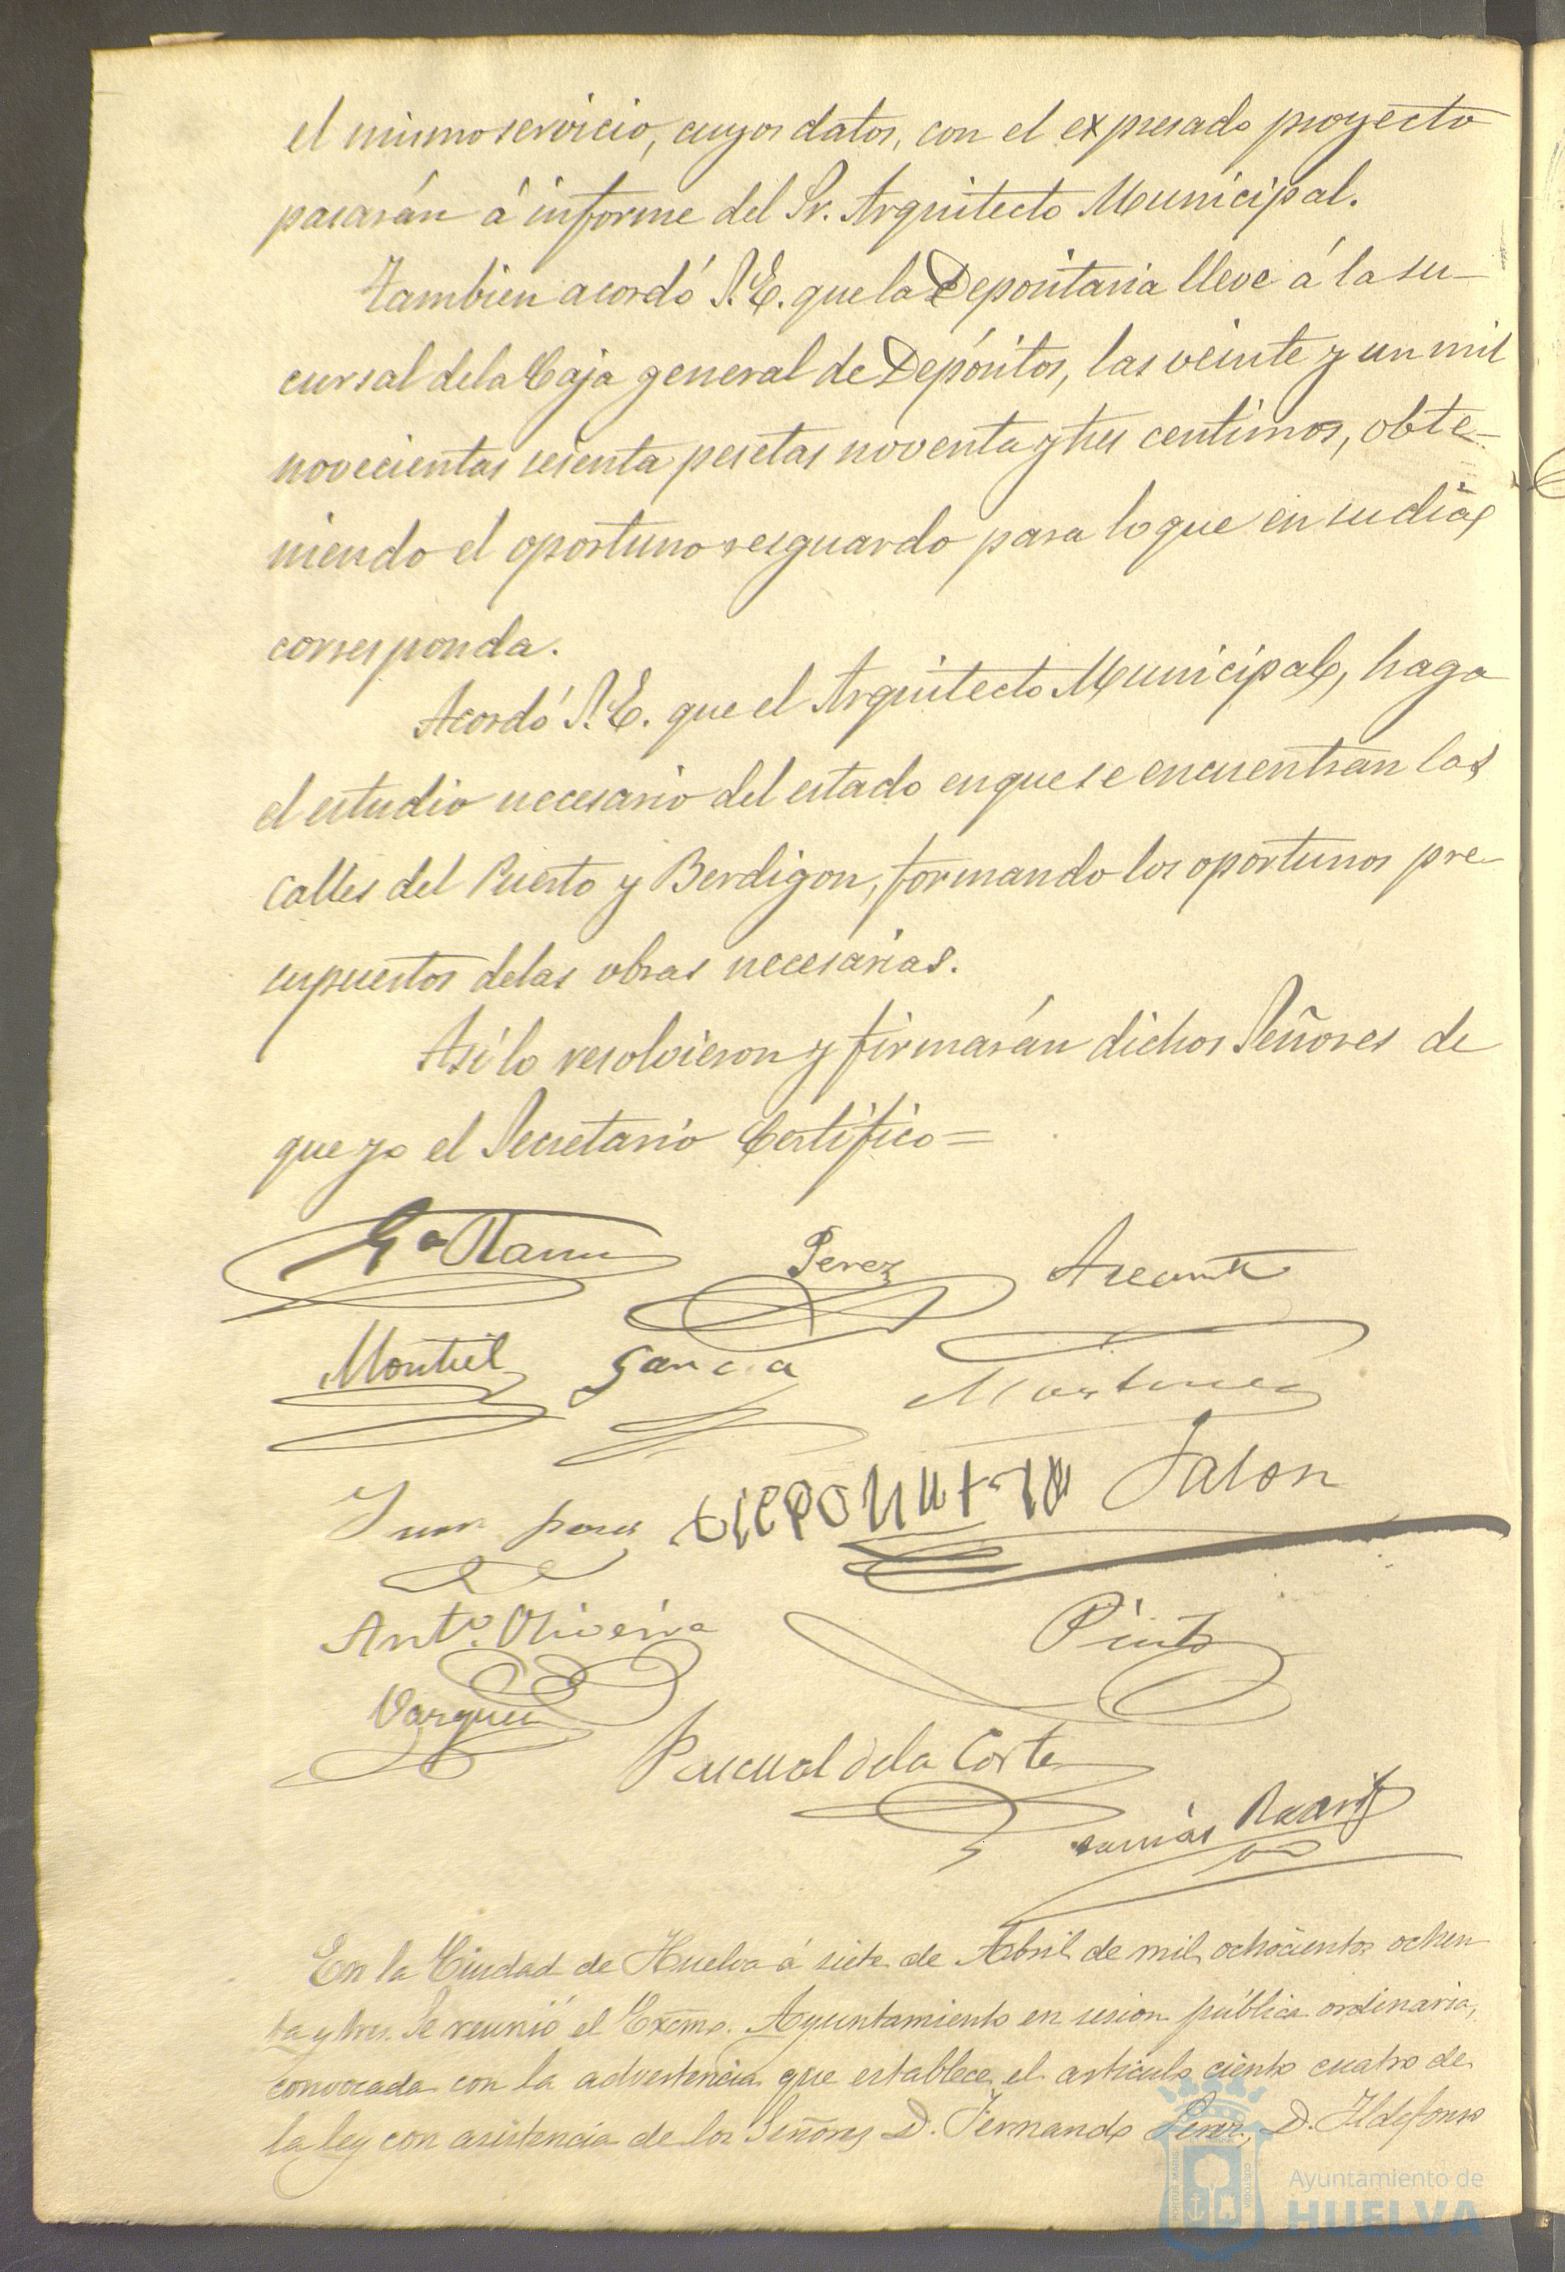 el mismo servicio, cuyos datos, con el expresado proyecto
pasarán á informe del Sr. Arquitecto Municipal.
Tambien acordó S.E. que la Depositaria lleve á la su-
cursal de la Caja general de Depósitos, las veinte y un mil
novecientas sesenta pesetas noventa y tres centimos, obte-
niendo el oportuno resguardo para lo que en su dia
corresponda.
Acordó S.E. que el Arquitecto Municipal, haga
el estudio necesario del estado en que se encuentran las
Calles del Puerto y Berdigon, formando los oportunos pre-
supuestos de las obras necesarias.
Asi lo resolvieron y firmarán dichos Señores de
que yo el Secretario Certifico=
Perez
Montiel Garcia Martinez
Jalon
Anto. Oliveira
Pinto
Vazquez
Pascual de la Corte
En la Ciudad de Huelva á siete de Abril de mil ochocientos ochen
ta y tres. Se reunió el Excmo. Ayuntamiento en sesion pública ordinaria,
convocada con la advertencia que establece el articulo ciento cuatro de
la Ley con asistencia de los Señores D. Fernando Perez, D. Ildefonso
Ayuntamiento de
HUELVA